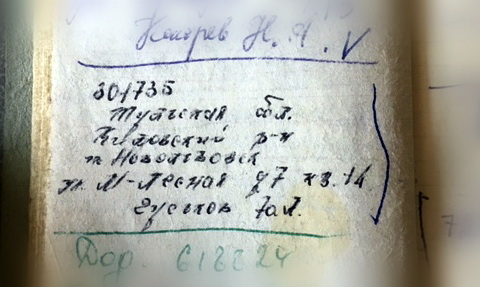 Н. А.
301735
Тульская обл.
Кимовский р-н
п. Новольвовск
ул. М-Лесная д7 кв. 14
Гуськов Ю.Л.
Дор. 618824